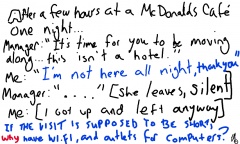 After a few hours at a McDonalds Café
one night...
Manager: "It's time for you to be moving
along... this isn't a hotel..."
Me: "I'm not here all night, thank you"
Manager: "....." [She leaves, silent]
Me: [I got up and left anyway]
If the visit is supposed to be short,
why have Wi.Fi, and outlets for computers?